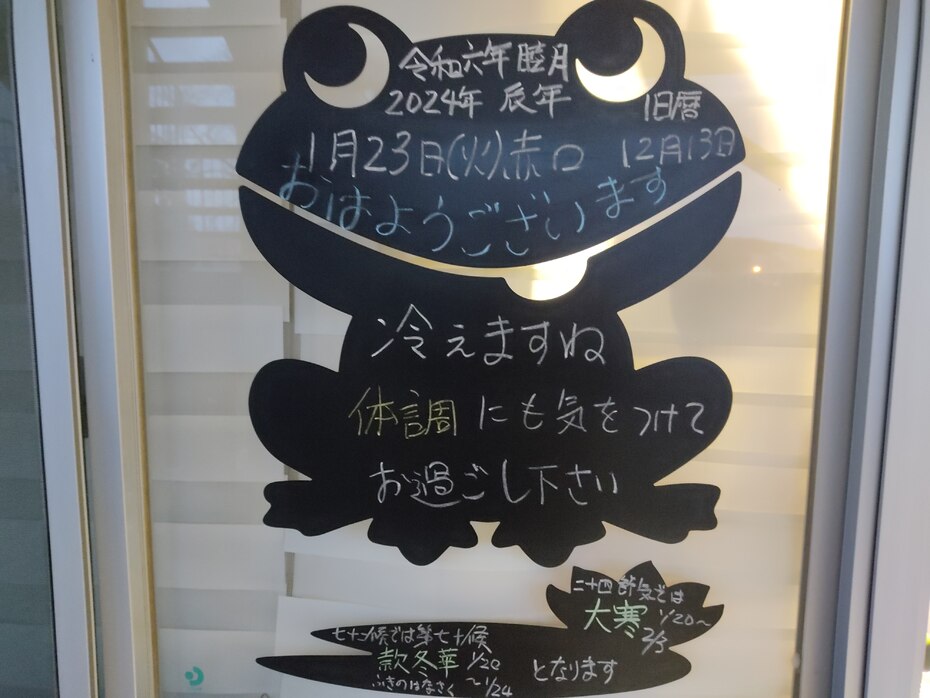 令和六年 睦月
2024年 辰年
旧暦
1月23日(火)赤口 12月13日
おはようございます
冷えますね
体調にも気をつけて
お過ごし下さい
二十四節気では
大寒 1/20~
2/3
七十二候では第七十候
款冬華 1/20
ふきのはなさく ~1/24
となります